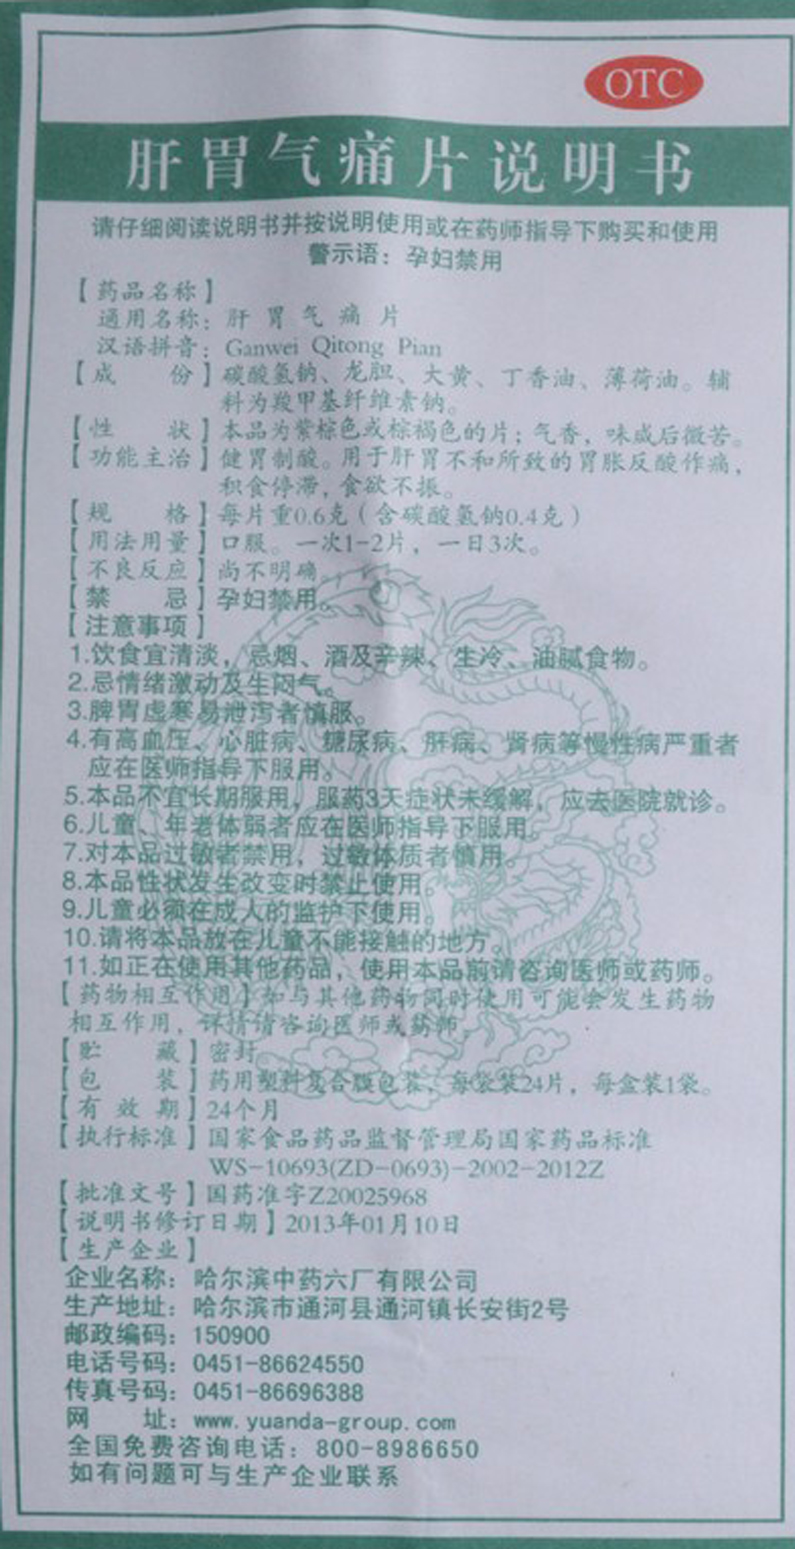 OTC
肝胃气痛片说明书
请仔细阅读说明书并按说明使用或在药师指导下购买和使用
警示语：孕妇禁用
【药品名称】
通用名称：肝胃气痛片
汉语拼音：Ganwei Qitong Pian
【成　　份】碳酸氢钠、龙胆、大黄、丁香油、薄荷油。辅
料为羧甲基纤维素钠。
【性　　状】本品为紫棕色或棕褐色的片；气香，味咸后微苦。
【功能主治】健胃制酸。用于肝胃不和所致的胃胀反酸作痛，
积食停滞，食欲不振。
【规　　格】每片重0.6克（含碳酸氢钠0.4克）
【用法用量】口服。一次1-2片，一日3次。
【不良反应】尚不明确
【禁　　忌】孕妇禁用。
【注意事项】
1.饮食宜清淡，忌烟、酒及辛辣、生冷、油腻食物。
2.忌情绪激动及生闷气。
3.脾胃虚寒易泄泻者慎服。
4.有高血压、心脏病、糖尿病、肝病、肾病等慢性病严重者
应在医师指导下服用。
5.本品不宜长期服用，服药3天症状未缓解，应去医院就诊。
6.儿童、年老体弱者应在医师指导下服用。
7.对本品过敏者禁用，过敏体质者慎用。
8.本品性状发生改变时禁止使用。
9.儿童必须在成人的监护下使用。
10.请将本品放在儿童不能接触的地方。
11.如正在使用其他药品，使用本品前请咨询医师或药师。
【药物相互作用】如与其他药物同时使用可能会发生药物
相互作用，详情请咨询医师或药师
【贮　　藏】密封
【包　　装】药用塑料复合膜包装，每袋装24片，每盒装1袋。
【有 效 期】24个月
【执行标准】国家食品药品监督管理局国家药品标准
WS-10693(ZD-0693)-2002-2012Z
【批准文号】国药准字Z20025968
【说明书修订日期】2013年01月10日
【生产企业】
企业名称：哈尔滨中药六厂有限公司
生产地址：哈尔滨市通河县通河镇长安街2号
邮政编码：150900
电话号码：0451-86624550
传真号码：0451-86696388
网　　址：www.yuanda-group.com
全国免费咨询电话：800-8986650
如有问题可与生产企业联系